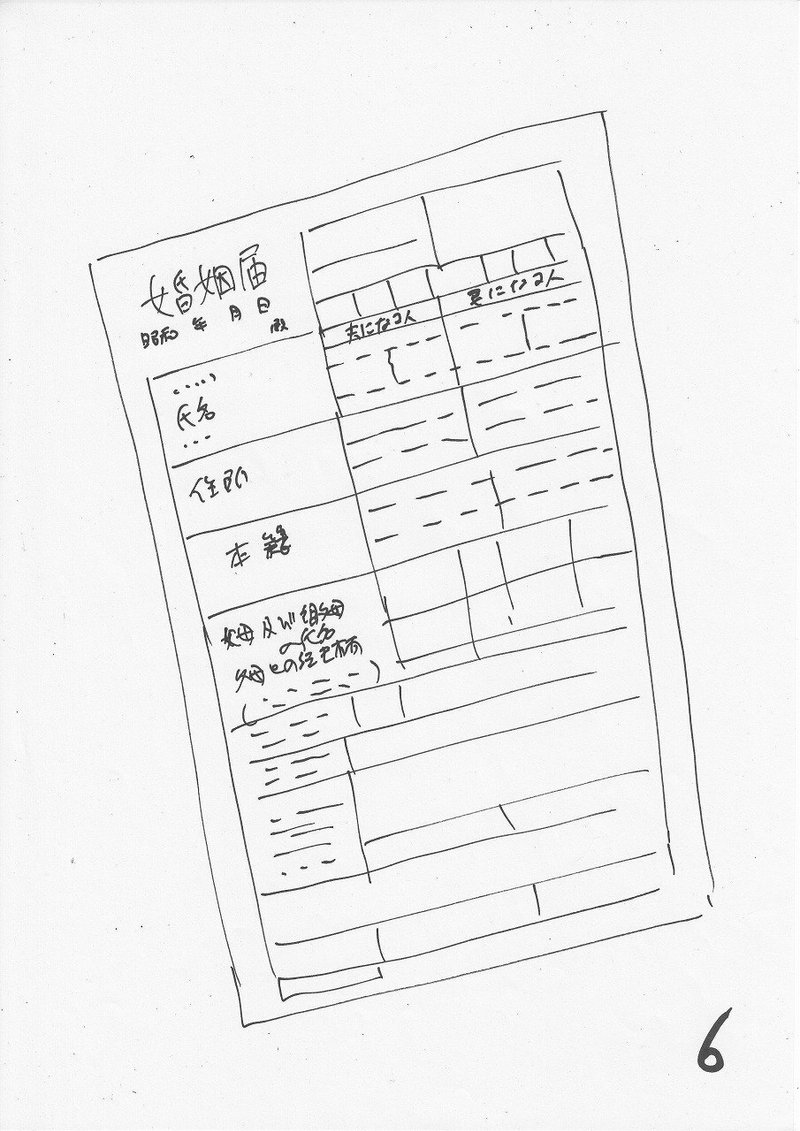 婚姻届
昭和 年 月 日
殿
夫になる人
妻になる人
氏名
住所
本籍
父母及び
の氏名
父母との続き柄
6